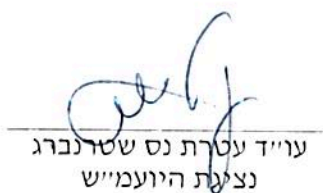 עו״ד עטרת נס שטרנברג
נציגת היועמ״ש